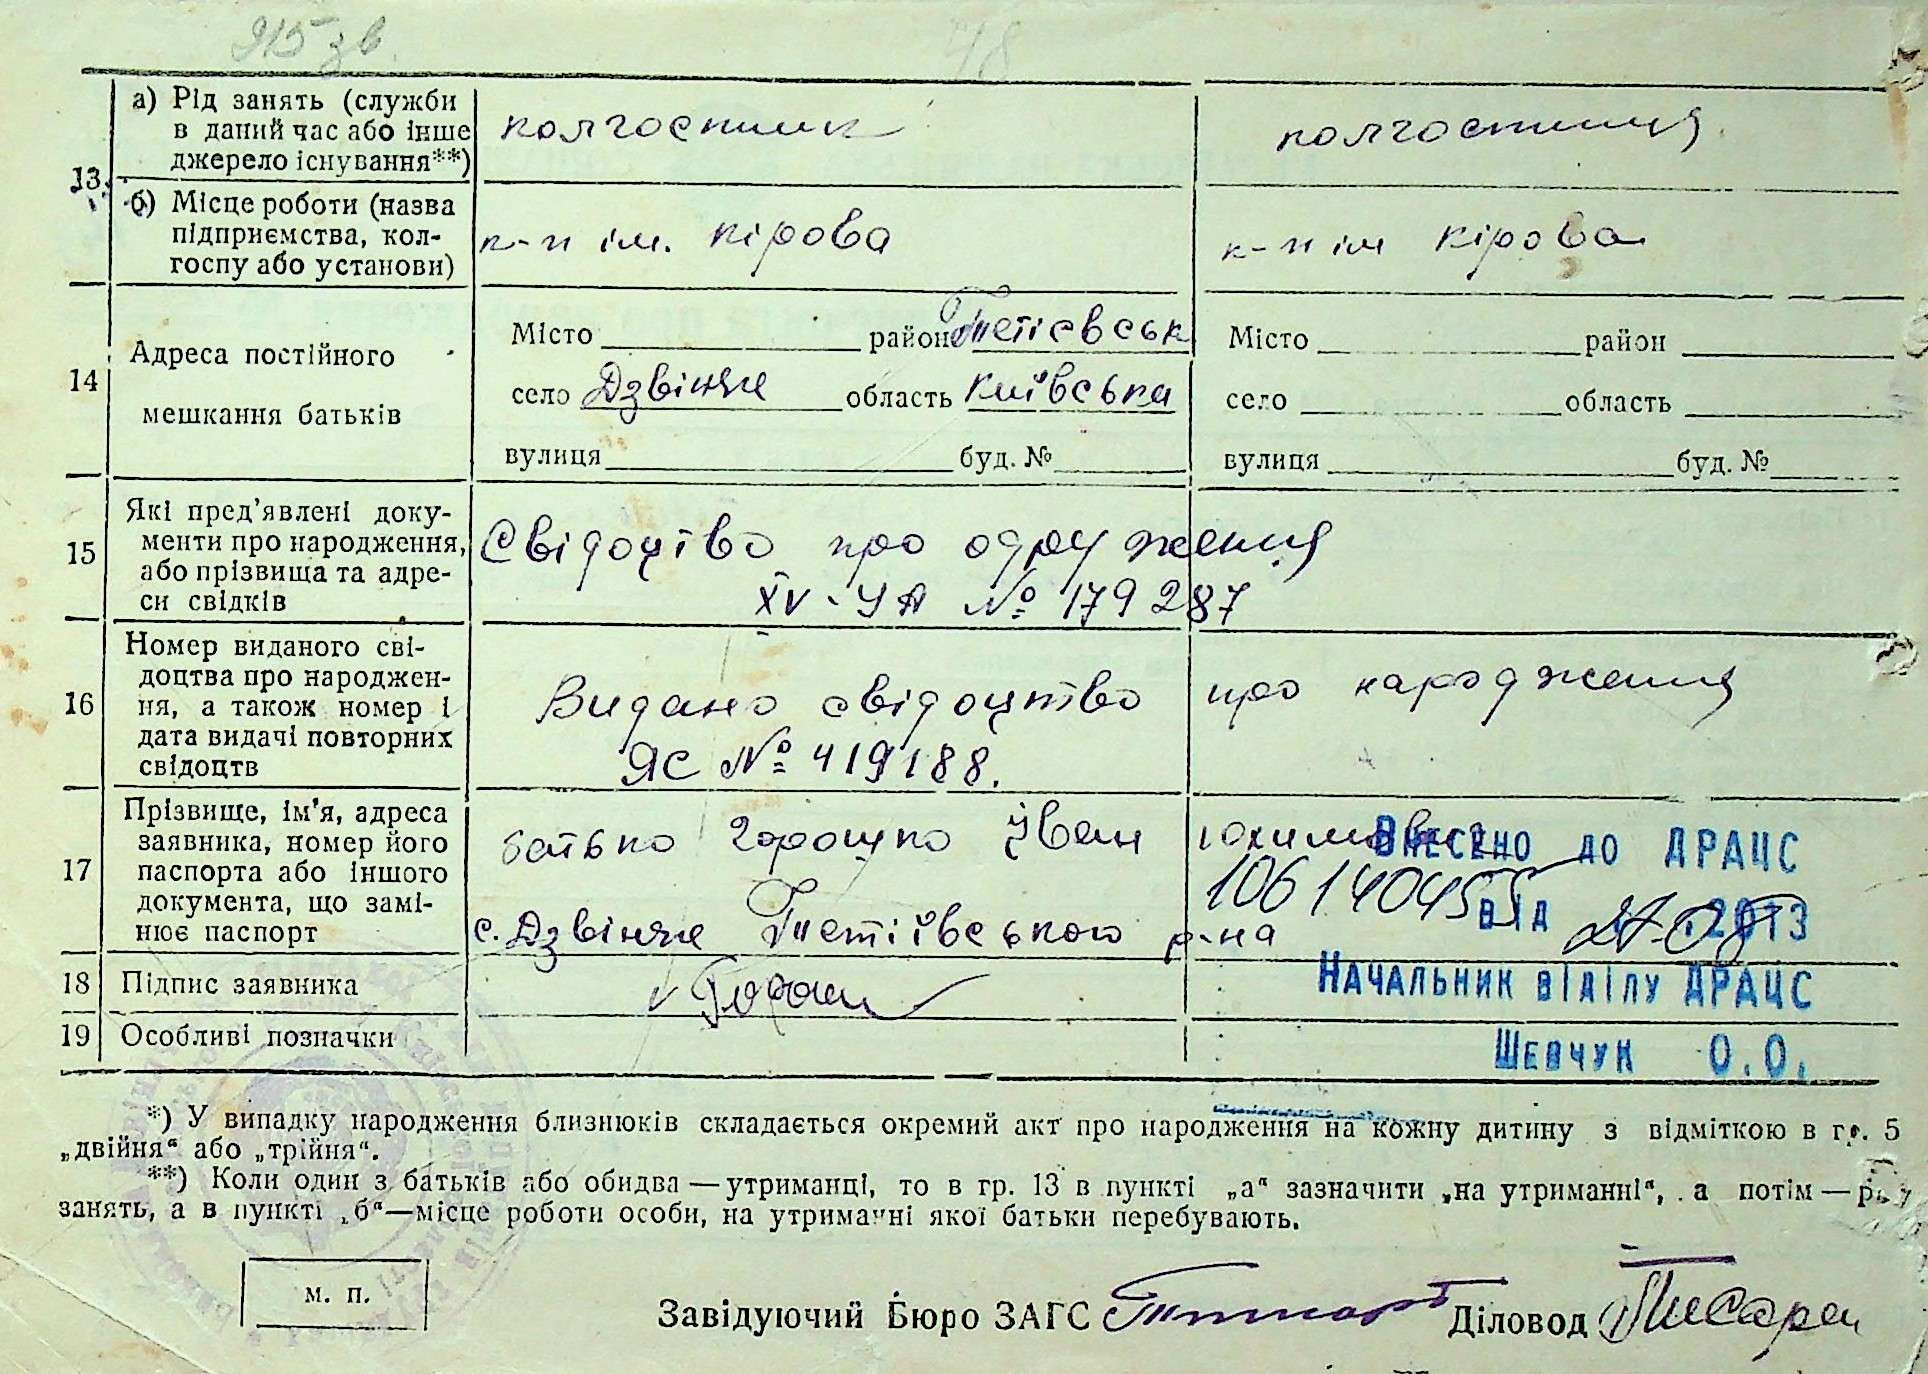 915 зв.
48
13
а) Рід занять (служби в даний час або інше джерело існування**)
колгоспник
колгоспниця
б) Місце роботи (назва підприємства, колгоспу або установи)
к-п ім. Кірова
к-п ім Кірова
14
Адреса постійного
мешкання батьків
Місто район Тетієвськ
село Дзвіняче область Київська
вулиця буд. №
Місто район
село область
вулиця буд. №
15
Які пред'явлені доку-
менти про народження,
або прізвища та адре-
си свідків
Свідоцтво про одруження
XV-УА № 179287
16
Номер виданого сві-
доцтва про народжен-
ня, а також номер і
дата видачі повторних
свідоцтв
Видано свідоцтво про народження
ЯС № 419188.
17
Прізвище, ім'я, адреса
заявника, номер його
паспорта або іншого
документа, що замі-
нює паспорт
батько Горошко Іван Юхимович
с. Дзвіняче Тетіївського р-на
Внесено до ДРАЦС
1061404555
від 27.08.2013
Начальник відділу ДРАЦС
Шевчук О.О.
18 Підпис заявника
19 Особливі позначки
*) У випадку народження близнюків складається окремий акт про народження на кожну дитину з відміткою в гр. 5
„двійня“ або „трійня“.
**) Коли один з батьків або обидва — утриманці, то в гр. 13 в пункті „а“ зазначити „на утриманні“, а потім — рід
занять, а в пункті „б“—місце роботи особи, на утриманні якої батьки перебувають.
м. п.
Завідуючий Бюро ЗАГС Діловод